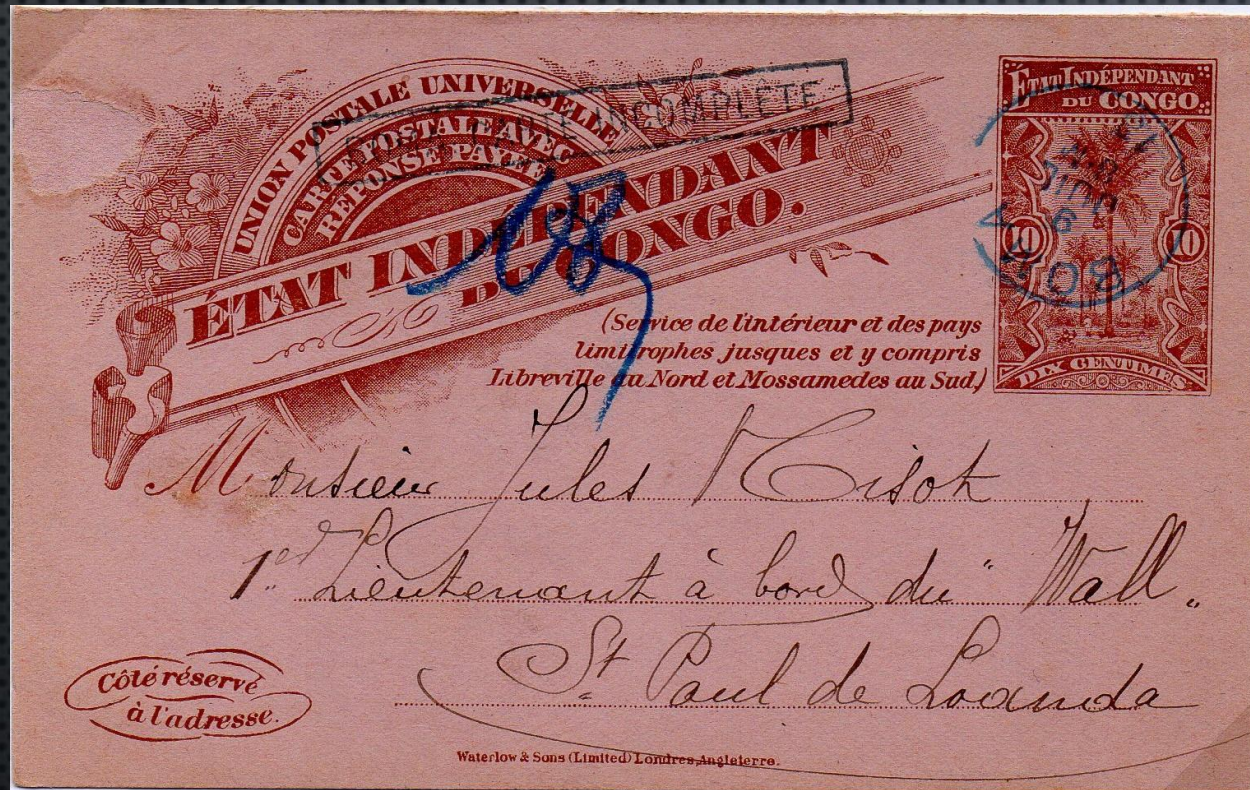 UNION POSTALE UNIVERSELLE
CARTE POSTALE AVEC
RÉPONSE PAYÉE
CARTE INCOMPLÈTE
ÉTAT INDÉPENDANT
DU CONGO.
(Service de l'intérieur et des pays
limitrophes jusques et y compris
Libreville au Nord et Mossamedes au Sud.)
ÉTAT INDÉPENDANT
DU CONGO.
10 10
DIX CENTIMES
BOMA
6
JUIL
Monsieur Jules
1er Lieutenant à bord du "Wall"
St. Paul de Loanda
Côté réservé
à l'adresse.
Waterlow & Sons (Limited) Londres, Angleterre.